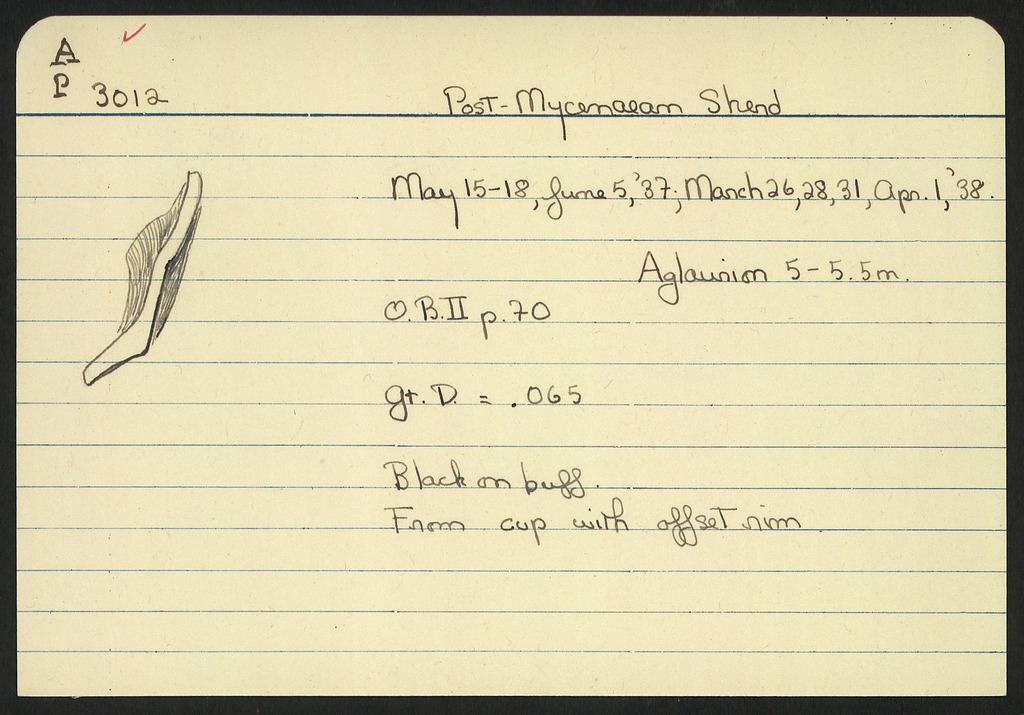 A
P 3012
Post-Mycenaean Sherd
May 15-18, June 5, '37; March 26, 28, 31, Apr. 1, '38.
Aglaurion 5-5.5m.
O.B.II p.70
gt. D. = .065
Black on buff.
From cup with offset rim